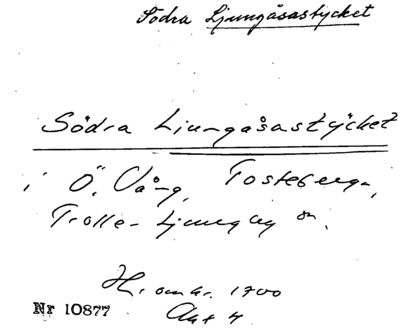 Södra Ljungåsastycket
Södra Ljungåsastycket
i Ö. Vång, Tosteberga,
Trolle-Ljungby sn.
H. omkr. 1700
Akt 4
Nr 10877